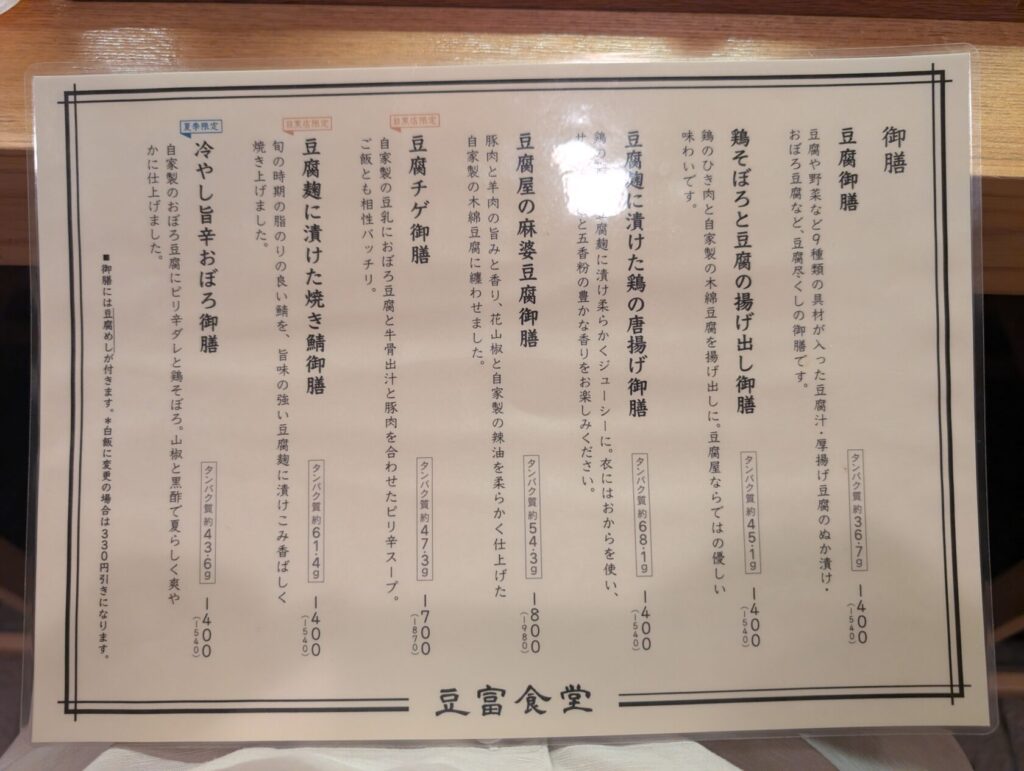 御膳
豆腐御膳
豆腐や野菜など9種類の具材が入った豆腐汁・厚揚げ豆腐のぬか漬け・
おぼろ豆腐など、豆腐尽くしの御膳です。
タンパク質 約36.7g
一400
(一540)
鶏そぼろと豆腐の揚げ出し御膳
鶏のひき肉と自家製の木綿豆腐を揚げ出しに。豆腐屋ならではの優しい
味わいです。
タンパク質 約45.1g
一400
(一540)
豆腐麹に漬けた鶏の唐揚げ御膳
鶏の 腐麹に漬け柔らかくジューシーに。衣にはおからを使い、
と五香粉の豊かな香りをお楽しみください。
タンパク質 約68.1g
一400
(一540)
豆腐屋の麻婆豆腐御膳
豚肉と羊肉の旨みと香り、花山椒と自家製の辣油を柔らかく仕上げた
自家製の木綿豆腐に纏わせました。
タンパク質 約54.3g
一800
(一980)
目黒店限定
豆腐チゲ御膳
自家製の豆乳におぼろ豆腐と牛骨出汁と豚肉を合わせたピリ辛スープ。
ご飯とも相性バッチリ。
タンパク質 約47.3g
一700
(一870)
目黒店限定
豆腐麹に漬けた焼き鯖御膳
旬の時期の脂のりの良い鯖を、旨味の強い豆腐麹に漬けこみ香ばしく
焼き上げました。
タンパク質 約61.4g
一400
(一540)
夏季限定
冷やし旨辛おぼろ御膳
自家製のおぼろ豆腐にピリ辛ダレと鶏そぼろ。山椒と黒酢で夏らしく爽や
かに仕上げました。
タンパク質 約43.6g
一400
(一540)
■御膳には豆腐めしが付きます。*白飯に変更の場合は330円引きになります。
豆富食堂